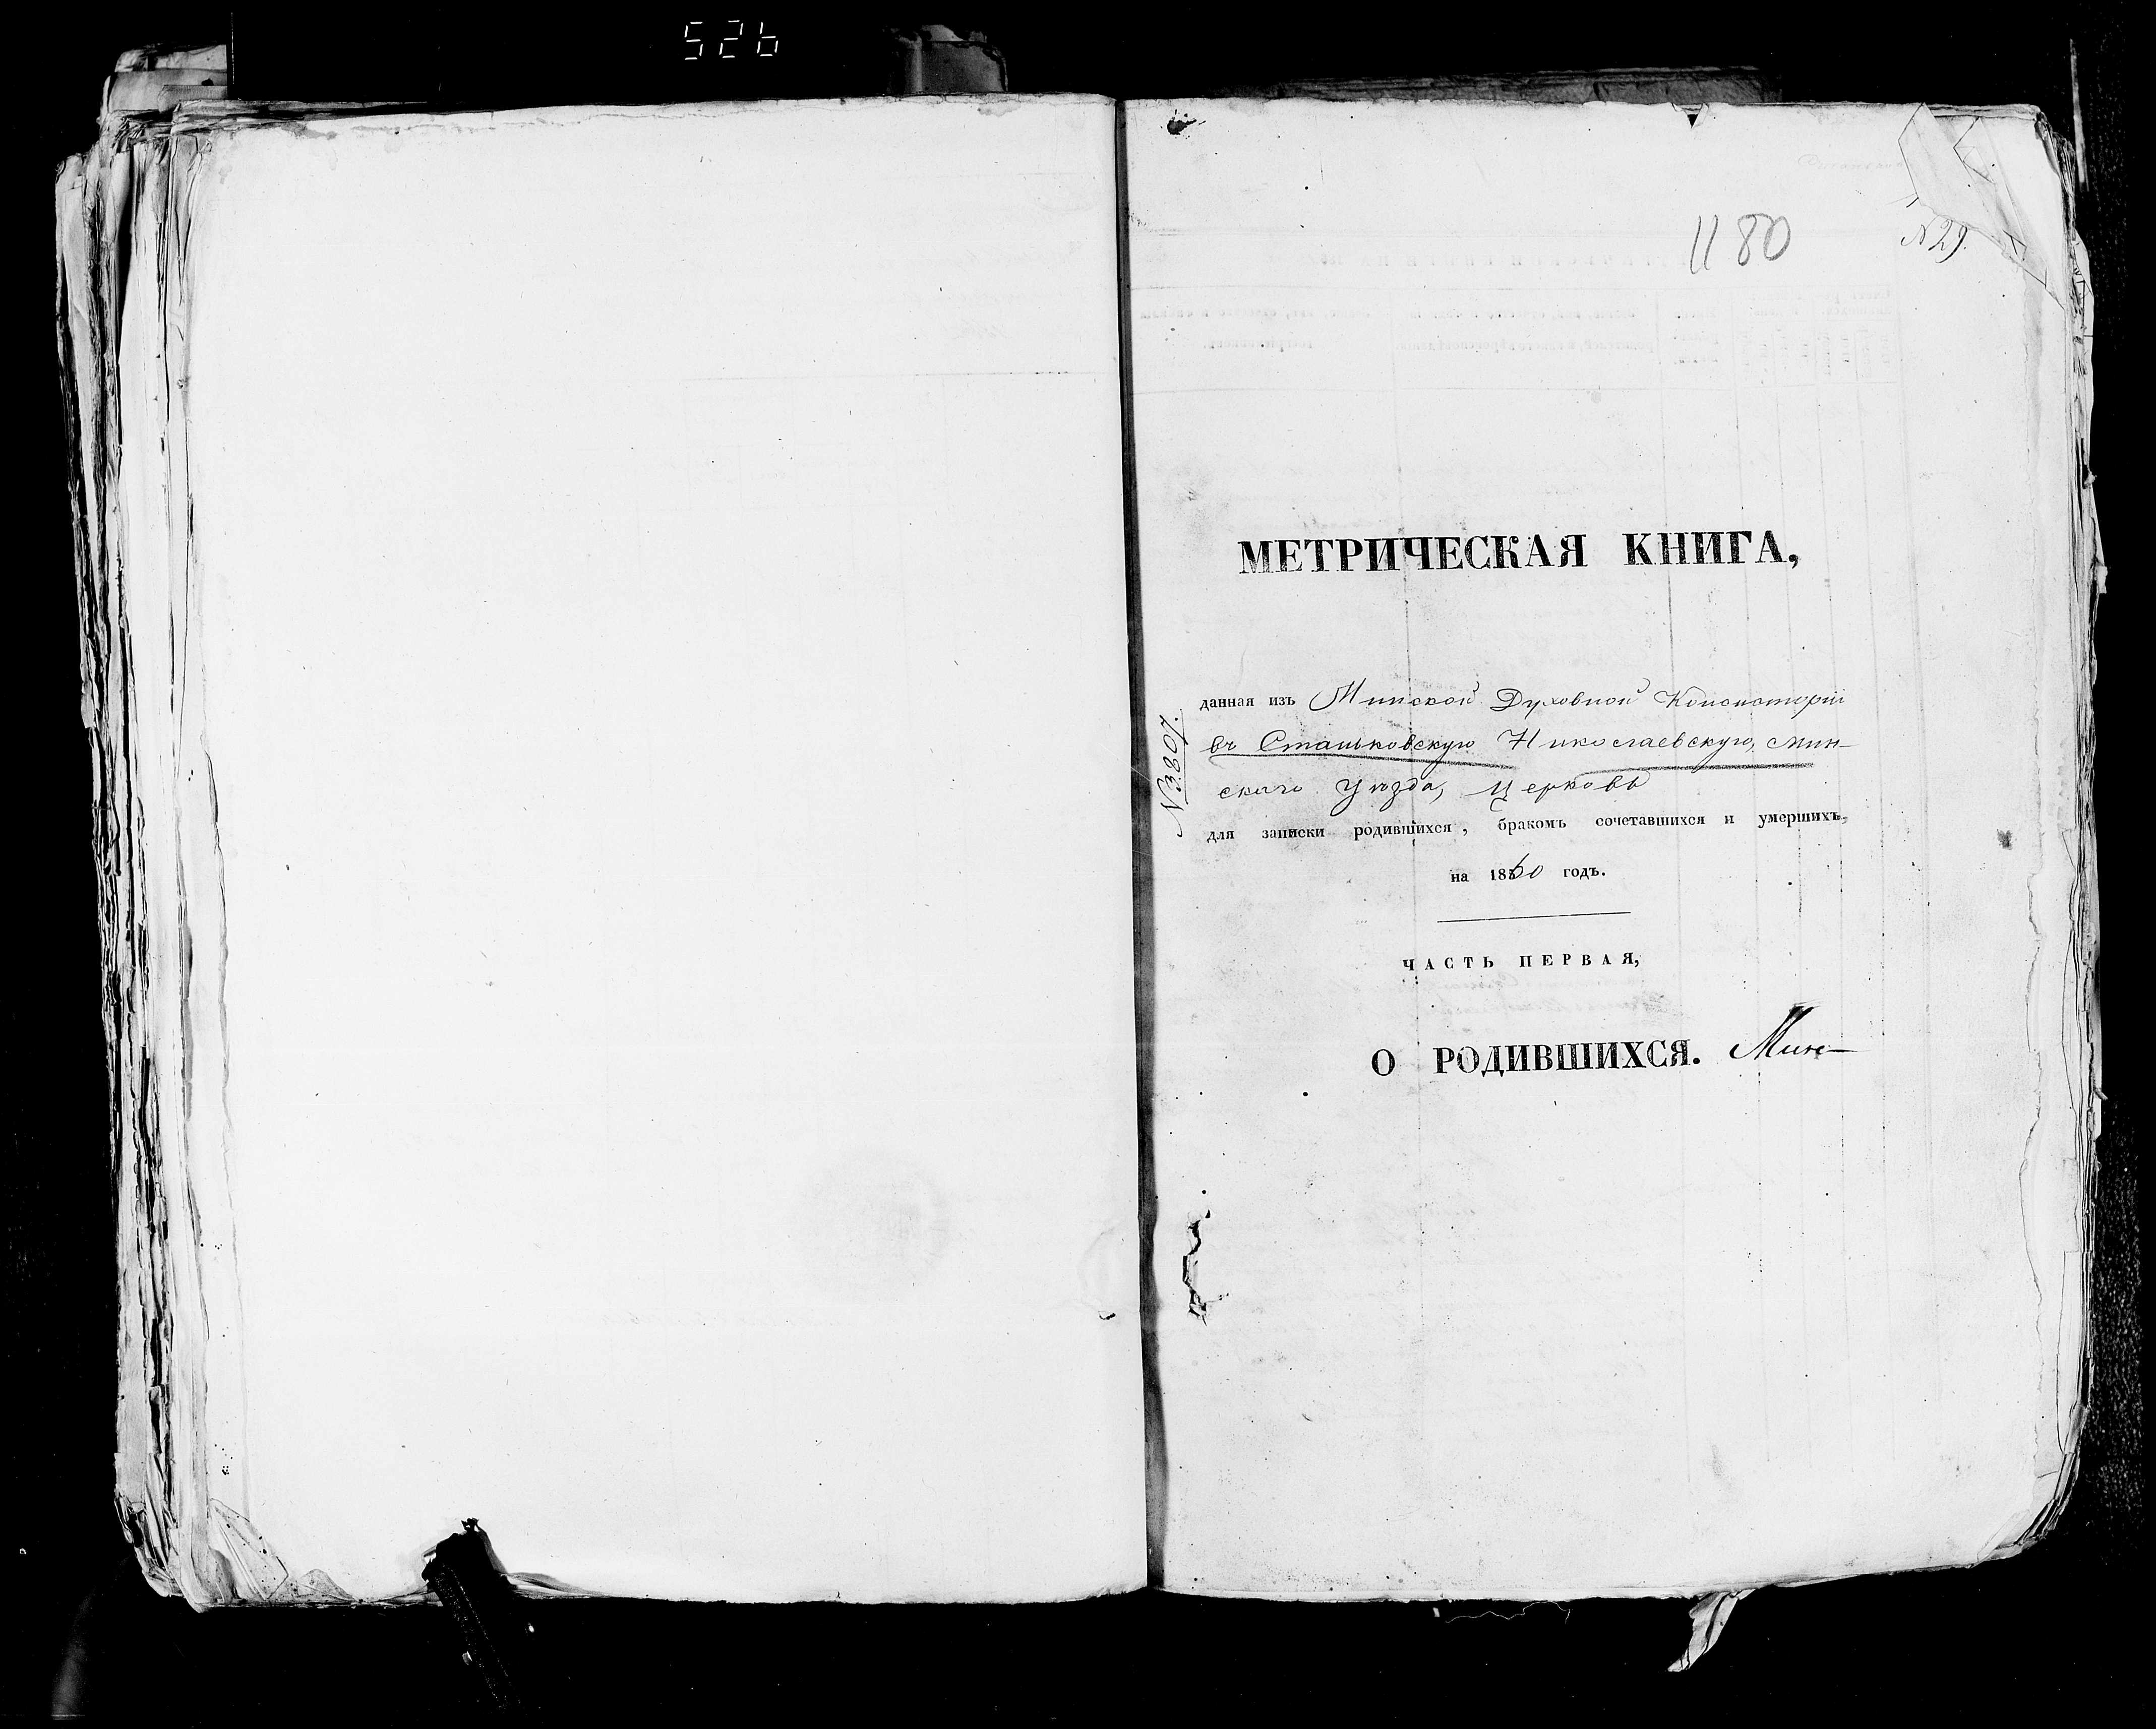 526
1180
№ 29.
МЕТРИЧЕСКАЯ КНИГА,
данная изъ Минской Духовной Консисторіи
въ Сташковскую Николаевскую, Мин-
скаго Уѣзда, Церковь
№ 3807.
для записки родившихся, бракомъ сочетавшихся и умершихъ,
на 1860 годъ.
ЧАСТЬ ПЕРВАЯ,
О РОДИВШИХСЯ. Мин-